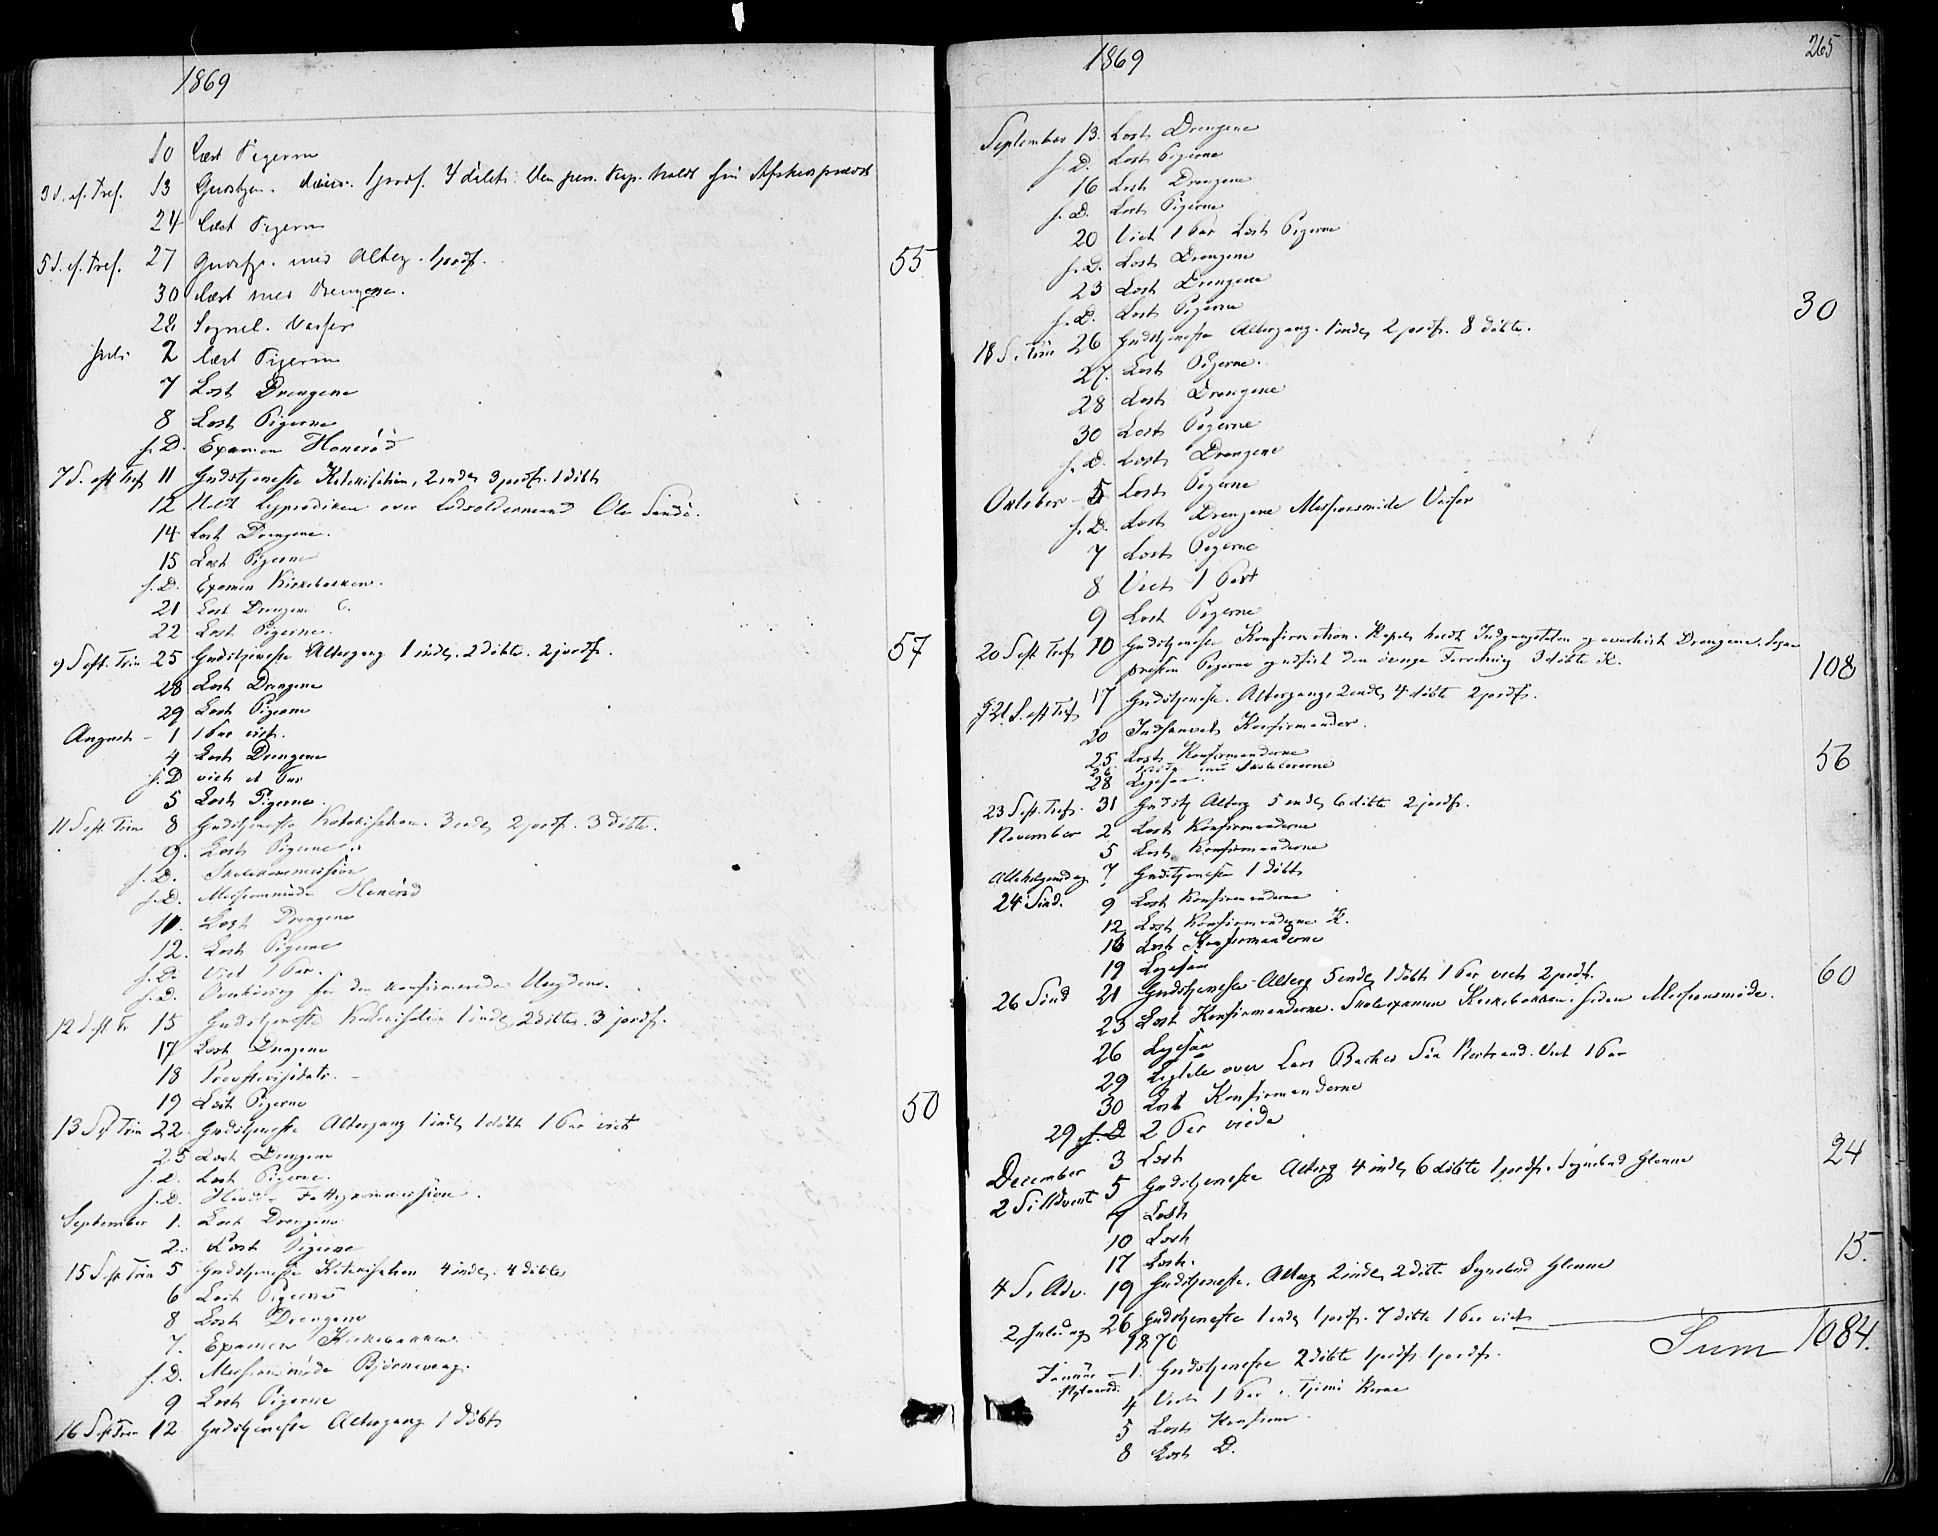 1869
10 Læst Pigerne
3 S. ef. Tref. 13 Gudstjen. 1 jordf. 4 døbte. Den pers. Kap. holdt sin Afskedspræd.
24 Læst Pigerne
5 S. ef. Tref. 27 Gudstj. med Alterg. 1 jordf. 55
30 Læst med Drengene.
28 Sognel. Vasser
Juli 2 Læst Pigerne
7 Læst Drengene
8 Læst Pigerne
s. D. Examen Honerød
7 S. eft Tref 11 Gudstjeneste Katekisation, 2 indl. 3 jordf. 1 døbt
12 Holdt Ligprædiken over Ole Sandø.
14 Læst Drengene.
15 Læst Pigerne
s. D. Examen Kirkebakken.
21 Læst Drengene
22 Læst Pigerne.
9 S eft. Trin 25 Gudstjeneste Altergang 1 indl. 2 døbte. 2 jordf. 57
28 Læst Drengene
29 Læst Pigerne
August - 1 1 Par viet.
4 Læst Drengene
s. D viet et Par
5 Læst Pigerne.
11 S eft. Trin 8 Gudstjeneste Katekisation. 3 indl. 2 jordf. 3 døbte.
9. Læst Pigerne.
s. D. Skolekommission
s. D. Missionsmøde Honerød
10. Læst Drengene
12. Læst Pigerne
s. D. Viet 1 Par.
s. D. Overhøring for den konfirmerede Ungdom.
12 S eft Tr 15 Gudstjeneste Katekisation 1 indl. 2 døbte. 3 jordf.
17 Læst Drengene
18 Provstevisitats.
19 Læst Pigerne
13 S ef Trin 22. Gudstjeneste Altergang 1 indl. 1 døbt 1 Par viet 50
25 Læst Drengene
s. D. Læst Pigerne.
s. D. Fattigkommission.
September 1. Læst Drengene
2. Læst Pigerne
15 S eft Trin 5 Gudstjeneste Katekisation 4 indl. 4 døbte
6 Læst Pigerne
8 Læst Drengene
7. Examen Kirkebakken
s. D. Missionsmøde Bjørnevaag.
9 Læst Pigerne
16 S eft Trin 12 Gudstjeneste Altergang 1 døbt
1869 265
September 13. Læst Drengene
s. D. Læst Pigerne
16 Læst Drengene
s. D. Læst Pigerne
20 Viet 1 Par Læst Pigerne
s. D. Læst Drengene
23 Læst Drengene
s. D. Læst Pigerne
18 S. Trin 26 Gudstjeneste Altergang. 1 indl. 2 jordf. 8 døbte. 30
27. Læst Pigerne.
28 Læst Drengene
30 Læst Pigerne
s. D. Læst Drengene
Oktober - 5 Læst Pigerne
s. D. Læst Drengene Missionsmøde Vasser
7 Læst Pigerne
8 Viet 1 Par
9 Læst Pigerne
20 S eft Tref 10 Gudstjeneste Konfirmation. Kapel. holdt Indgangstalen og overhørte Drengene. Sogne
præsten Pigerne og udførte den øvrige Forretning 3 døbte K. 108
21 S. eft Tref 17 Gudstjeneste. Altergang 2 indl. 4 døbte 2 jordf.
20 Indskrevet Konfirmander.
25 Læst Konfirmanderne
26 med Skolelærerne
28 Ligesaa. 56
23 S eft. Tref. 31 Gudstj Alterg 5 indl. 6 døbte 2 jordf.
November 2 Læst Konfirmanderne
5 Læst Konfirmanderne
Allehelgensdag 7 Gudstjeneste 1 døbt
24 Sind. 9 Læst Konfirmanderne
12 Læst Konfirmanderne K.
16 Læst Konfirmanderne
19 Ligesaa
26 Sind 21 Gudstjeneste Alterg 5 indl. 1 døbt 1 Par viet 2 jordf. 60
23 Læst Konfirmanderne. Skoleexamen Kirkebakken, siden Missionsmøde.
26 Ligesaa
29 Ligtale over Lars Viet 1 Par
30 Læst Konfirmanderne
29 s. D 2 Par viede
December 3 Læst
2 S i Advent 5 Gudstjeneste Alterg 4 indl. 6 døbte 1 jordf. Sognebud Glenne 24
7 Læst
10 Læst
17 Læst.
4 S. Adv. 19 Gudstjeneste. Alterg 2 indl. 2 døbte Sognebud Glenne 15.
2 Juledag 26 Gudstjeneste 1 indl. 1 jordf. 7 døbte 1 Par viet
Sum 1084.
1870
Januar - 1. Gudstjeneste 2 døbte 1 jordf. 1 jordf.
Nytaarsd.
4 Viet 1 Par i Tjømø Kirke
5 Læst Konfirm.
8 Læst D.